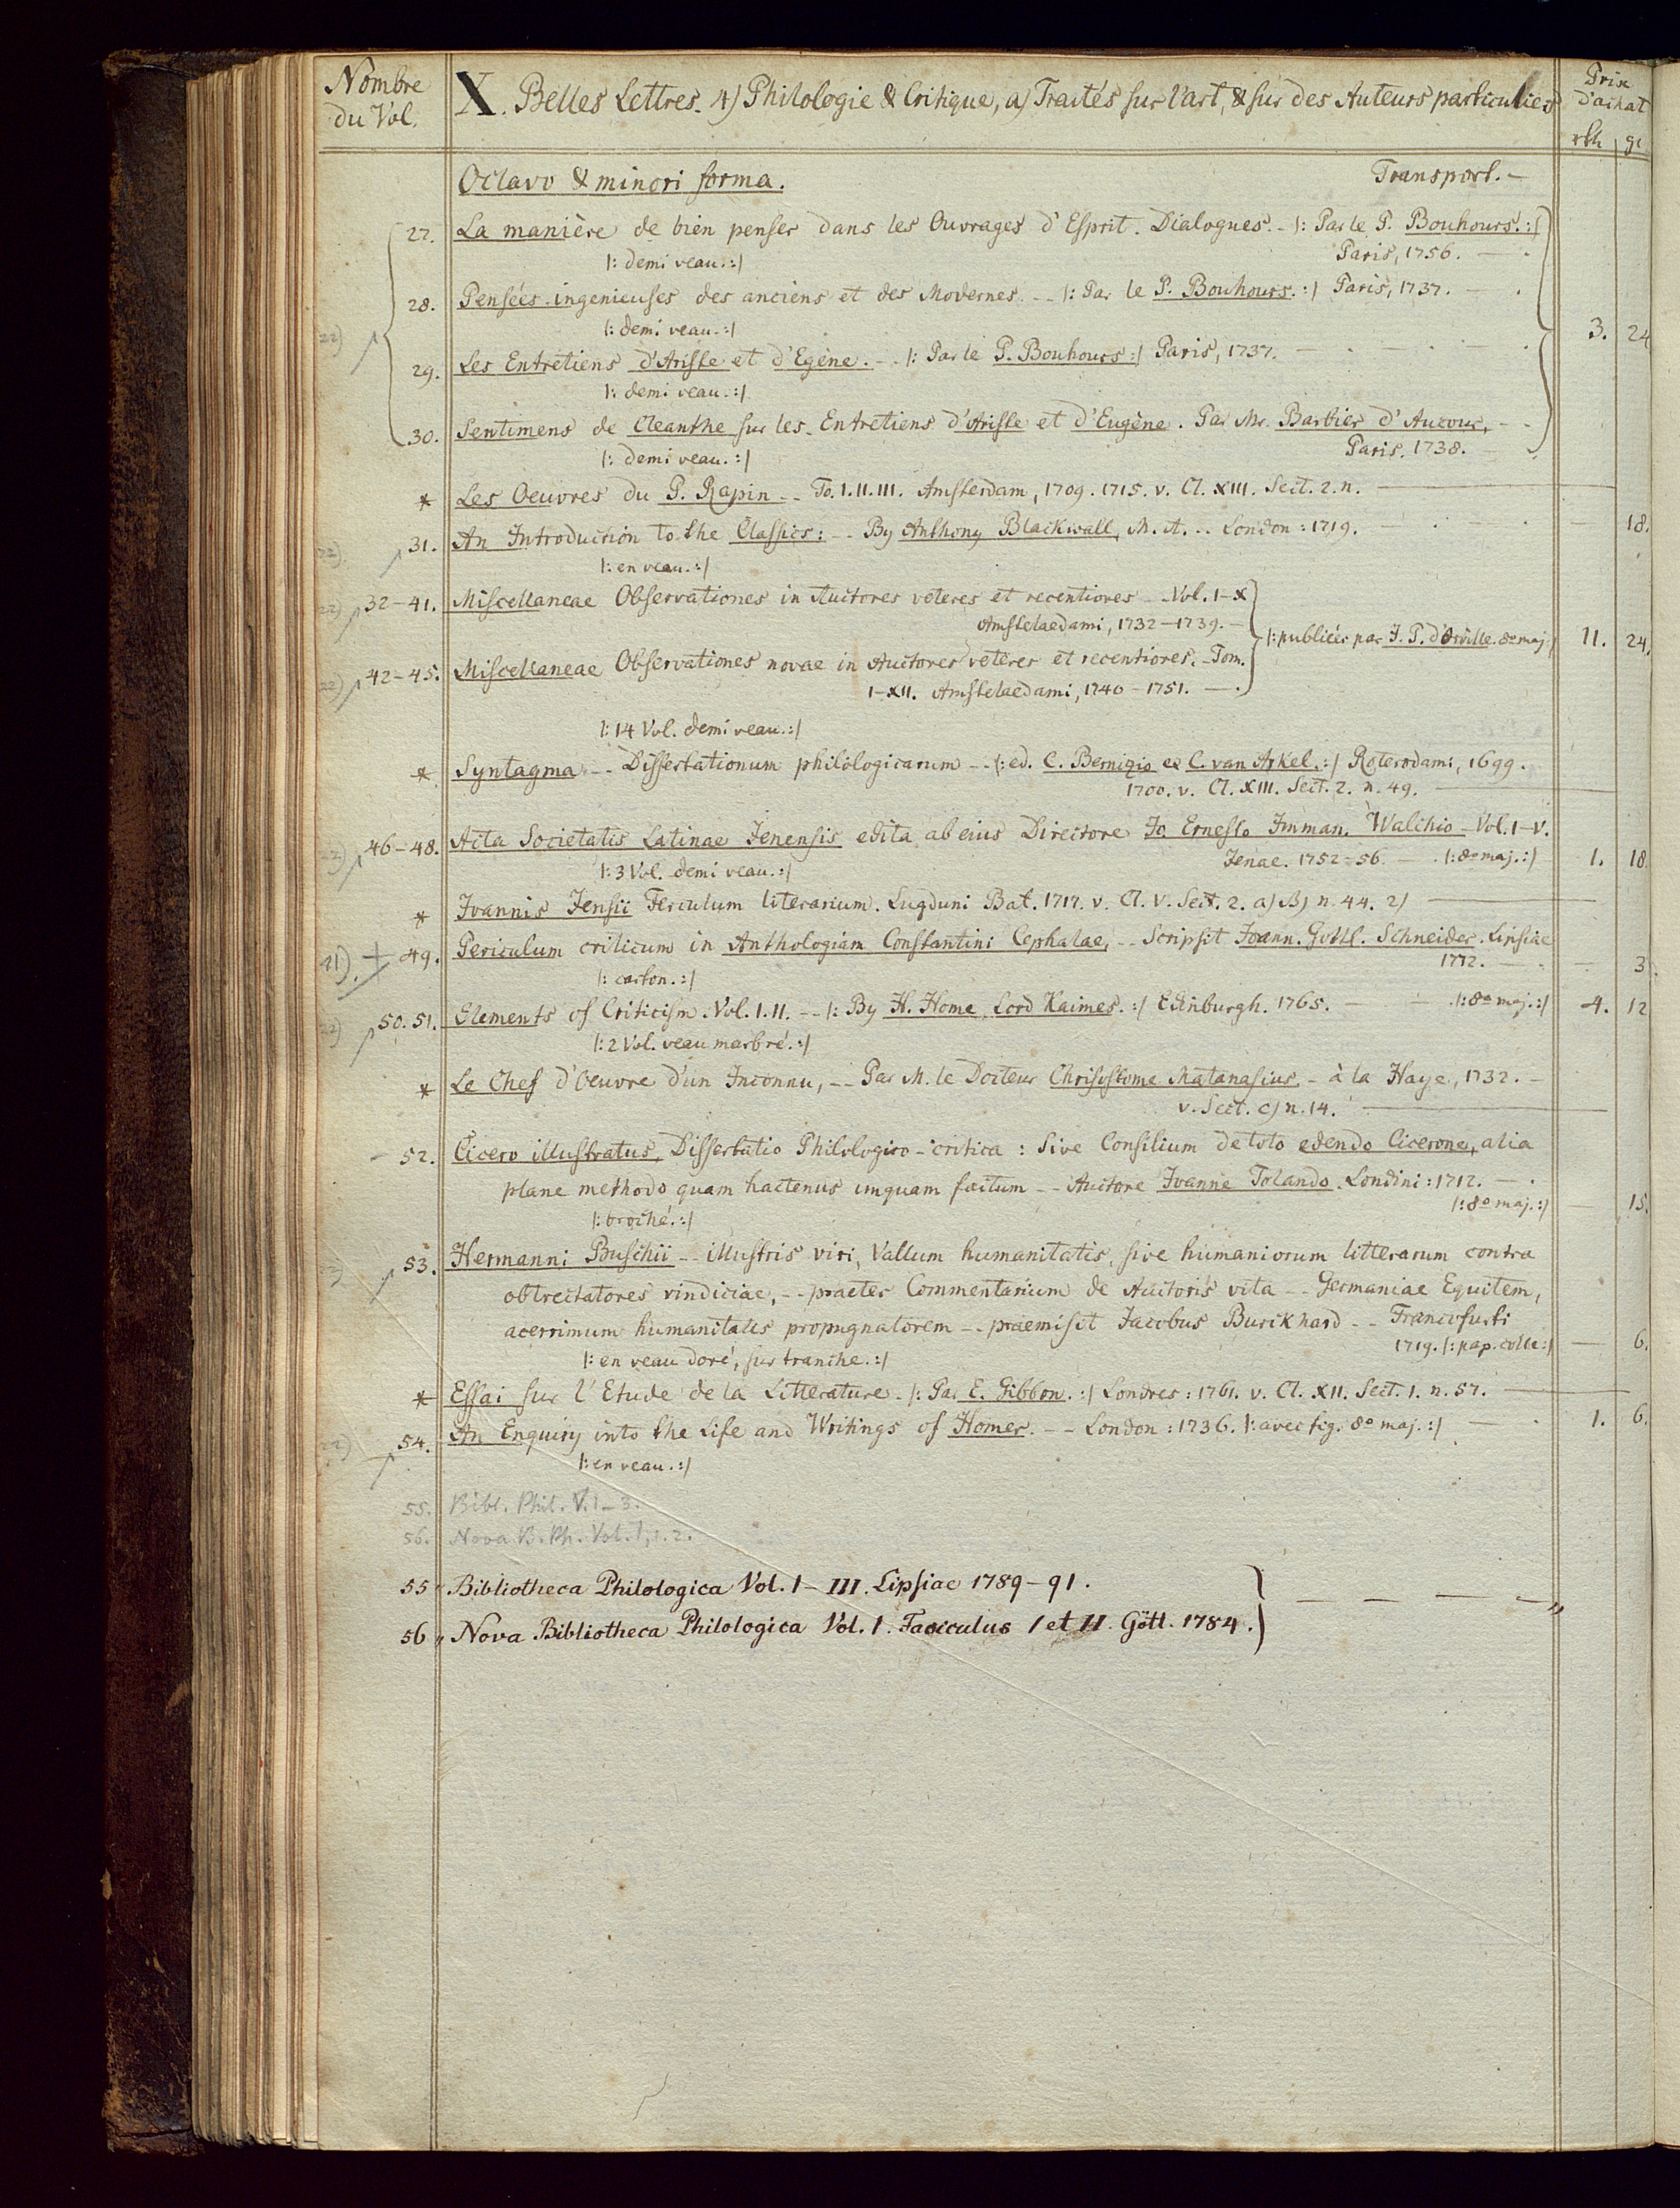 Nombre du Vol.
X. Belles Lettres. 4) Philologie & Critique, a) Traités sur l'art, & sur des Auteurs particuliers
Prix d'achat
rth gr
Octavo & minori forma. Transport. –
27. La manière de bien penser dans les Ouvrages d'Esprit. Dialogues. – |: Par le P. Bouhours. :|
|: demi veau. :| Paris, 1756. –
28. Pensées ingenieuses des anciens et des Modernes. -- |: Par le P. Bouhours. :| Paris, 1737. –
22) |: demi veau. :| 3. 24
29. Les Entretiens d'Ariste et d'Egène. -- |: Par le P. Bouhours :| Paris, 1737. –
|: demi veau. :|
30. Sentimens de Cleanthe sur les Entretiens d'Ariste et d'Eugène. Par Mr. Barbier d'Aucour, --
|: demi veau. :| Paris. 1738. –
* Les Oeuvres du P. Rapin -- To. I. II. III. Amsterdam, 1709. 1715. v. Cl. XIII. Sect. 2. n. –
22) 31. An Introduction to the Classics: -- By Anthony Blackwall, M. A. -- London: 1719. – 18.
|: en veau. :|
22) 32–41. Miscellaneae Observationes in Auctores veteres et recentiores -- Vol. I–X
Amstelaedami, 1732–1739. –
|: publiées par J. P. d'Orville. 8o maj. 11. 24.
22) 42–45. Miscellaneae Observationes novae in Auctores veteres et recentiores. – Tom.
I–XII. Amstelaedami, 1740–1751. –
|: 14 Vol. demi veau. :|
* Syntagma -- Dissertationum philologicarum -- |: ed. C. Bernigio et C. van Arkel. :| Roterodami, 1699.
1700. v. Cl. XIII. Sect. 2. n. 49. –
46–48. Acta Societatis Latinae Jenensis edita ab eius Directore Jo. Ernesto Imman. Walchio – Vol. I–V.
|: 3 Vol. demi veau. :| Jenae. 1752–56. – |: 8o maj. :| 1. 18
* Joannis Jensii Ferculum literarium. Lugduni Bat. 1717. v. Cl. V. Sect. 2. a) B) n. 44. 2) –
41) + 49. Periculum criticum in Anthologiam Constantini Cephalae, -- Scripsit Joann. Gottl. Schneider. Lipsiae
|: carton. :| 1772. – – 3.
22) 50. 51. Elements of Criticism. Vol. I. II. -- |: By H. Home, Lord Kaimes. :| Edinburgh. 1765. – |: 8o maj. :| 4. 12
|: 2 Vol. veau marbré. :|
* Le Chef d'Oeuvre d'un Inconnu, -- Par M. le Docteur Chrisostome Matanasius. – à la Haye, 1732. –
v. Sect. c) n. 14. –
52. Cicero illustratus, Dissertatio Philologico-critica: Sive Consilium de toto edendo Cicerone, alia
plane methodo quam hactenus unquam factum -- Auctore Joanne Tolando. Londini: 1712. –
|: broché. :| |: 8o maj. :| – 15.
53. Hermanni Buschii -- illustris viri, Vallum humanitatis, sive humaniorum litterarum contra
obtrectatores vindiciae, -- praeter Commentarium de Auctoris vita -- Germaniae Equitem,
acerrimum humanitatis propugnatorem -- praemisit Jacobus Burckhard -- Francofurti
|: en veau doré, sur tranche. :| 1719. |: pap. collé :| – 6.
* Essai sur l'Etude de la Litterature. – |: Par E. Gibbon. :| Londres: 1761. v. Cl. XII. Sect. 1. n. 57. –
22) 54. An Enquiry into the Life and Writings of Homer. -- London: 1736. |: avec fig. 8o maj. :| – 1. 6.
|: en veau. :|
55. Bibl. Phil. V. 1–3.
56. Nova B. Ph. Vol. I, 1. 2.
55„ Bibliotheca Philologica Vol. I–III. Lipsiae 1789–91.
56„ Nova Bibliotheca Philologica Vol. I. Fasciculus I et II. Gött. 1784. – – – –„